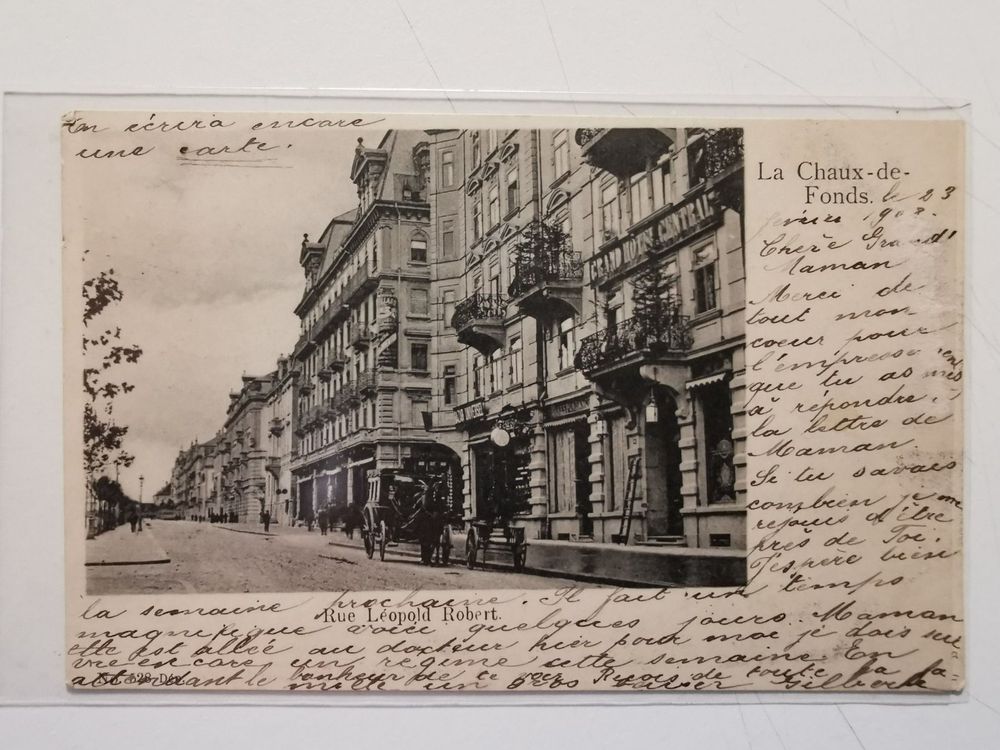 En écrira encore
une carte.
La Chaux-de-
Fonds. le 23
février 190
Chère Grand'
Maman
Merci de
tout mon
coeur pour
l'empresse
que tu as mis
à répondre
la lettre de
Maman
Si tu savais
combien je me
rejouis d'être
près de Toi.
J'espère bien
la semaine prochaine. Il fait un temps
Rue Léopold Robert.
magnifique voici quelques jours. Maman
elle est allée au docteur hier pour moi je dois
vre encore un régime cette semaine. En
attendant le bonheur de te Reçois de toute la fa-
mille un gros baiser Gilberte
GRAND HOTEL CENTRAL